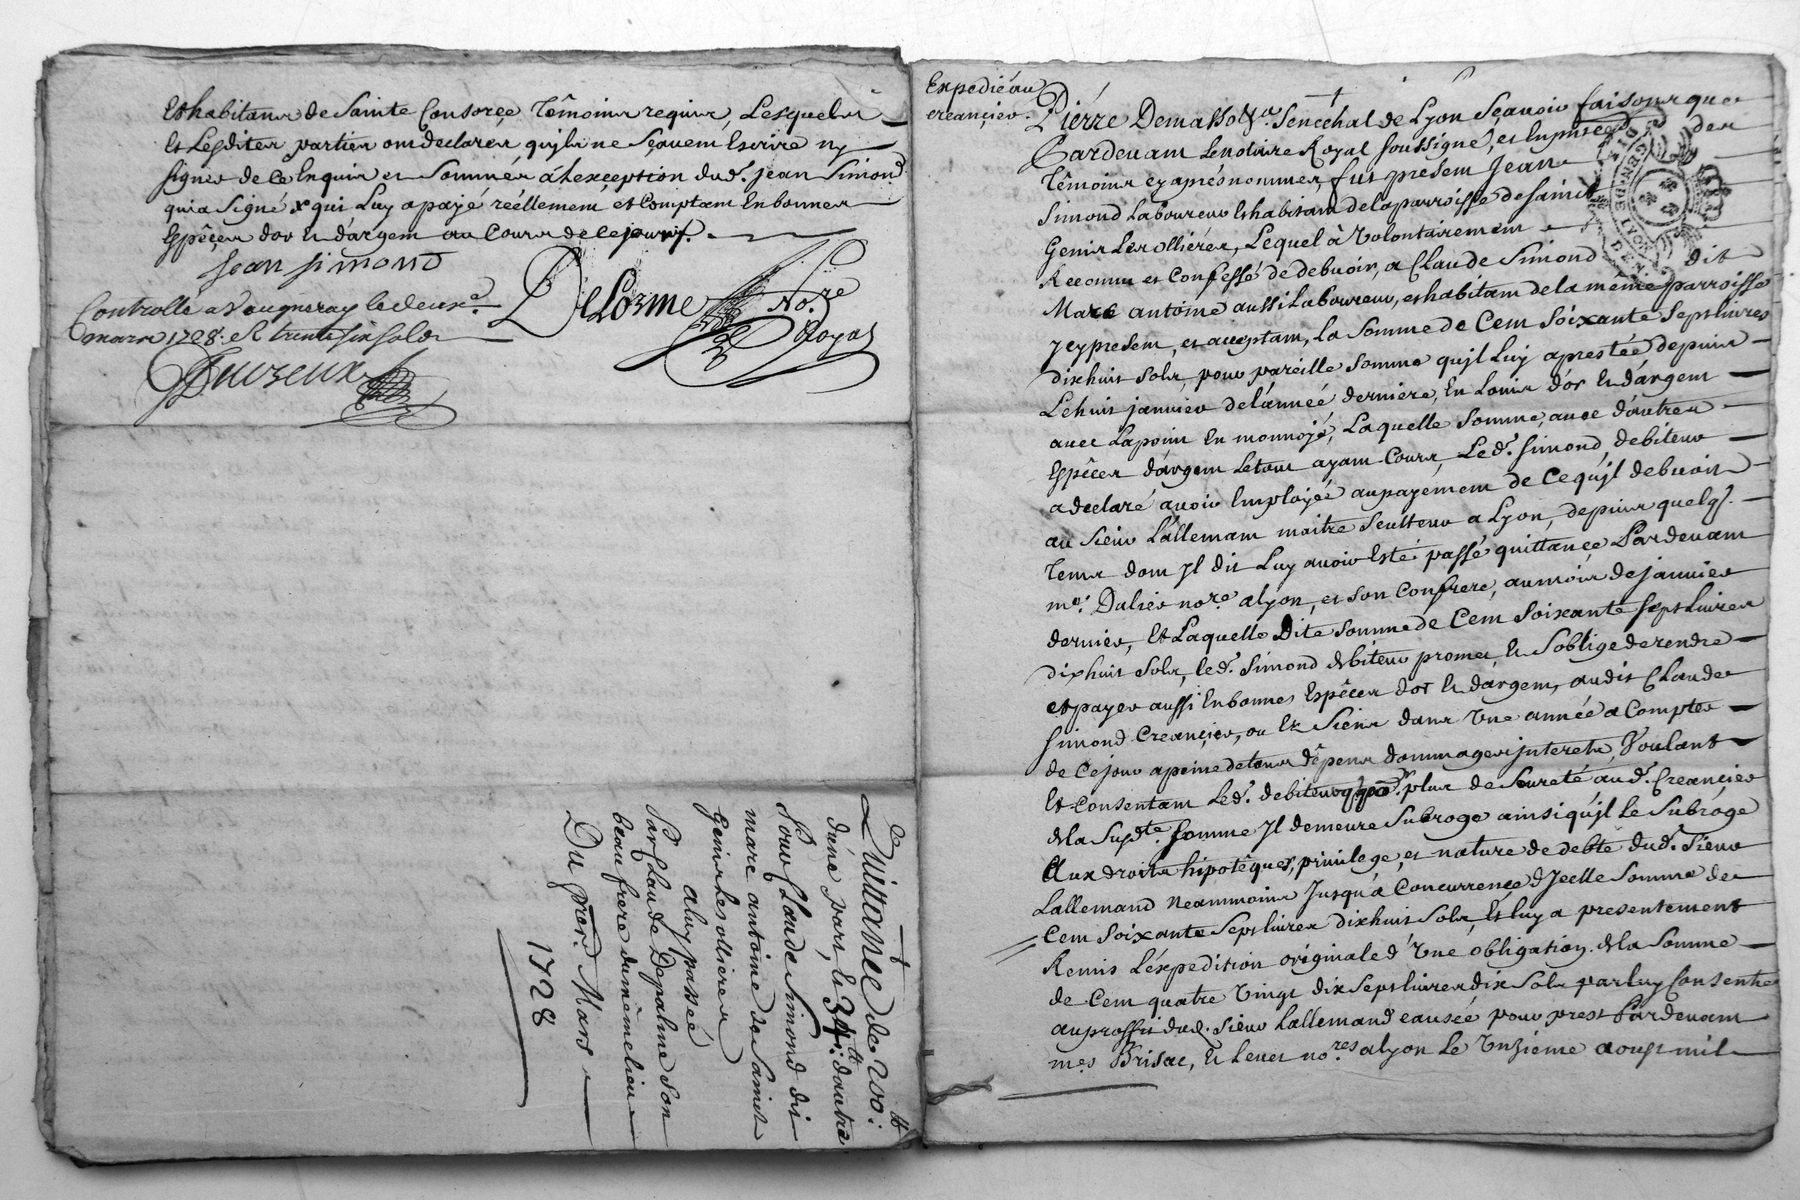 Et habitans de Sainte Consorce Témoins requis, Lesquels
Et Lesdites parties ont declarer, quils ne Sçavent Escrire ny
signer de ce Enquis et Sommés, á Lexception dud. jean Simond
qui a signé x qui Luy a payé réellement et Comptant En bonnes
Espéces dor et dárgent au Cours de ce jour.
jean simond
DeLorme No.re Royal
Controllé a Vaugneray le deux.e
mars 1728. R. trente six sols
Quittance de 200:tt
dúne part, et 34:tt dautre
Pour Claude Simond dit
marc antoine de Saint
Genis les ollieres
a luy passée
Par Claude Depalme son
beau frere du même lieu
Du pre.r Mars
1728
Expedié au
creancier.
Pierre Demasso &c. Senechal de Lyon Sçavoir faisons que
Pardevant Le notaire Royal soussigné, et En presence des
Témoins cy aprés nommes, fut present Jean
Simond Laboureur Et habitant de la parroisse de Saint
Genis Les ollieres, Lequel à Volontairement
Reconnu et Confessé de debvoir, a Claude Simond dit
Marc antoine aussi Laboureur, et habitant de la même parroisse
y cy present, et acceptant, La Somme de Cent Soixante Sept livres
dixhuit sols, pour pareille somme quil Luy a prestée, depuis
Le huit janvier de lánnée derniere, En Louis d'or et dárgent
avec Lapoint En monnoyé, Laquelle Somme, avec d'autres
Espéces dárgent Le tout ayant Cours, Le d. simond, debiteur
a declaré avoir Employée au payement de Ce quil debvoit
au Sieur Lallemant maitre a Lyon, depuis quelq.
Tems dont Il dit Luy avoir Esté passé quittance Pardevant
me. Dalier no.re a lyon, et son Confrere, au mois de janvier
dernier, Et Laquelle Dite Somme de Cent Soixante Sept Livres
dixhuit sols, le d. Simond debiteur promet, Et S'oblige de rendre
et payer aussi En bonnes Espéces dor Et dargent, audit Claude
Simond Creancier, ou Es Siens dans Une année a Compter
de Ce jour a peine de tous dépens dommages interets, Voulant
Et Consentant Le d. debiteur plus de Seureté au d. Creancier
de la Susd.te somme Il demeure Subrogé ainsi quil le Subroge
Aux droits hipotéques, privilege, et nature de debte dud. Sieur
Lallemand Neammoins Jusqu'á Concurrence d'Jcelle Somme de
Cent Soixante Sept livres dixhuit sols, Et luy a presentement
Remis Léxpedition originale d'Une obligation de la Somme
de Cent quatre Vingt dix Sept livres dix Sols par luy Consentie
au proffit dud. Sieur Lallemand causée pour prest Pardevant
mes Brisac, et no.res a lyon Le Unzieme aoust mil